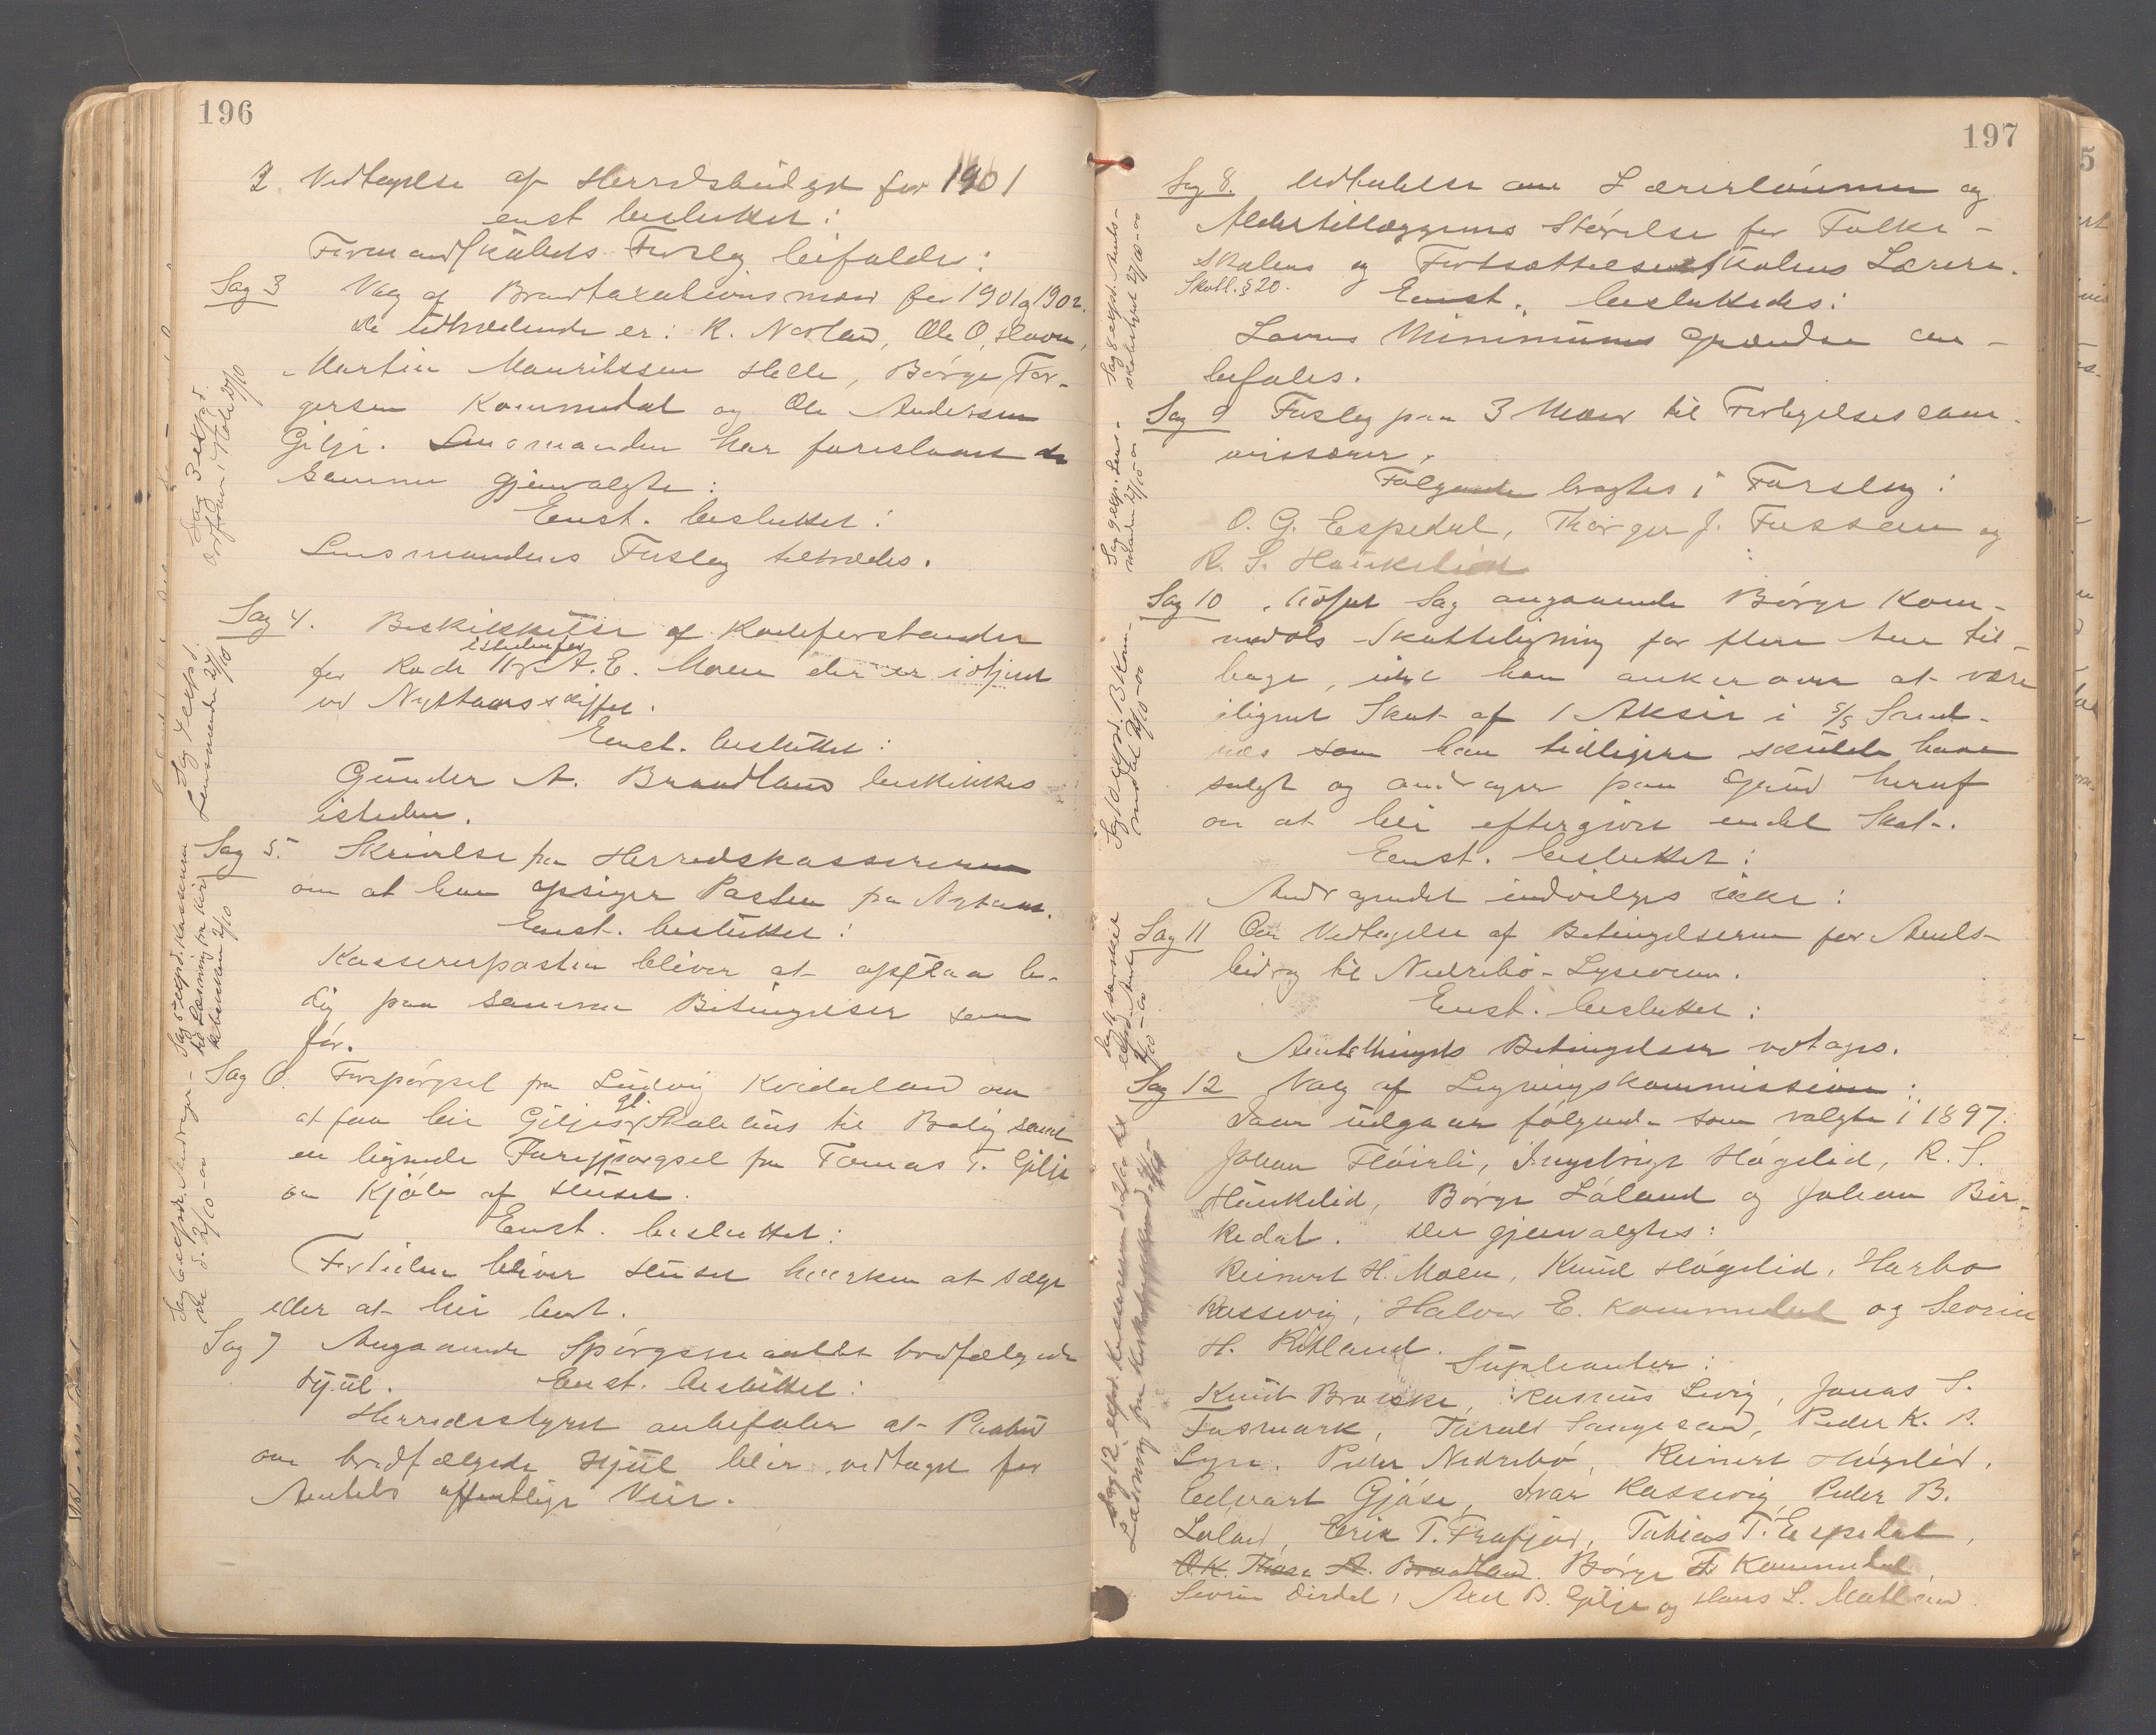 196
2 Vedtagelse af Herredsbudget for 1901
enst besluttet:
Formandskabets Forslag bifaldes:
Sag 3 Valg af Brandtaxationsmænd for 1901 og 1902.
de udtrædende er: R. Nesland, Ole O. Haavn,
Martin Mauritssen Helle, Børge Tor-
gersen Kommedal og Ole Andersen
Gilje. Lensmanden har foreslaaet de
samme gjenvalgte:
Eenst. besluttet:
Lensmandens Forslag tiltrædes.
Sag 4. Beskikkelse af Rodeforstander
for Rode 11 istedenfor A. E. Moen der er udtjent
ved Nyttaarsskiftet.
Eenst. besluttet:
Gunder A. Brandland beskikkes
isteden.
Sag 5. Skrivelse fra Herredskassereren
om at han opsiger Posten fra Nytaar.
Eenst. besluttet:
Kassererposten bliver at opslaa le-
dig paa samme Betingelser som
før.
Sag 6. Forspørgsel fra Ludvig Kvidaland om
at faa leie Giljes gl. Skolehus til Bolig samt
en lignende Forespørgsel fra Tomas T. Gilje
om Kjøb af Huset.
Eenst. besluttet:
Fortiden bliver Huset hverken at sælge
eller at leie bort.
Sag 7 Angaaende Spørgsmaalet bredfælgede
Hjul. Eenst. besluttet:
Herredsstyret anbefaler at Paabud
om bredfælgede Hjul blir vedtaget for
Amtets offentlige Veie.
Sag 3 expd.
Ordføreren i Møde 27/10
Sag 4 expd.
Lensmanden 27/10
Sag 5 expd. Kassereren
til Læsning fra Kir-
kebakken 2/10
197
Sag 8. Udtalelse om Lærerlønnen og
Alderstillæggenes Størelse for Folke-
skolens og Fortsættelsesskolens Lærere.
Skoll. § 20. Eenst. besluttedes:
Lovens Minimums Grændse an-
befales.
Sag 9 Forslag paa 3 Mænd til Forligelsescom-
missærer.
Følgende bragtes i Forslag:
O. G. Espedal, Thorger J. Fossan og
R. S. Haukelid
Sag 10. Utøst Sag angaaende Børge Kom-
medals Skatteligning for flere Aar til-
bage, idet han anker over at være
ilignet Skat af 1 Aksie i S/S Sand-
næs som han tidligere skulde have
solgt og andrager paa Grund heraf
om at bli eftergivet endel Skat.
Eenst. besluttet:
Andragendet indvilges ikke:
Sag 11 Om Vedtagelse af Betingelserne for Amts-
bidrag til Nedrebø-Lyseveien.
Eenst. besluttet:
Amtsthingets Betingelser vedtages.
Sag 12 Valg af Ligningskommission:
Som udgaar følgende som valgte i 1897.
Johan Fløirli, Ingebrigt Høgelid, R. S.
Haukelid, Børge Løland og Johan Bir-
kedal. Der gjenvalgtes:
Reinert H. Moen, Knud Høgelid, Harbo
Rossevig, Halvor E. Kommedal og Sevrin
H. Riitland.
Suppleanter:
Knut Brekke, Rasmus Levig, Jonas S.
Fosmark, Tarald Sangesand, Peder K. A.
Lyse. Peder Nedrebø, Reinert Høgelid,
Edvart Gjøse, Ivar Rossevig, Peder B.
Løland, Erik T. Frafjord, Tobias T. Espedal,
O. K. Thøse A. Brandland. Børge T Kommedal,
Sevrin Dirdal, Axel B. Gilje og Hans L. Mælland
Sag 8 expd. Amts-
skolestyret 27/10-00
Sag 9 exp. Lens-
manden 27/10-00
Sag 10 expd. B Kom-
medal 27/10-00